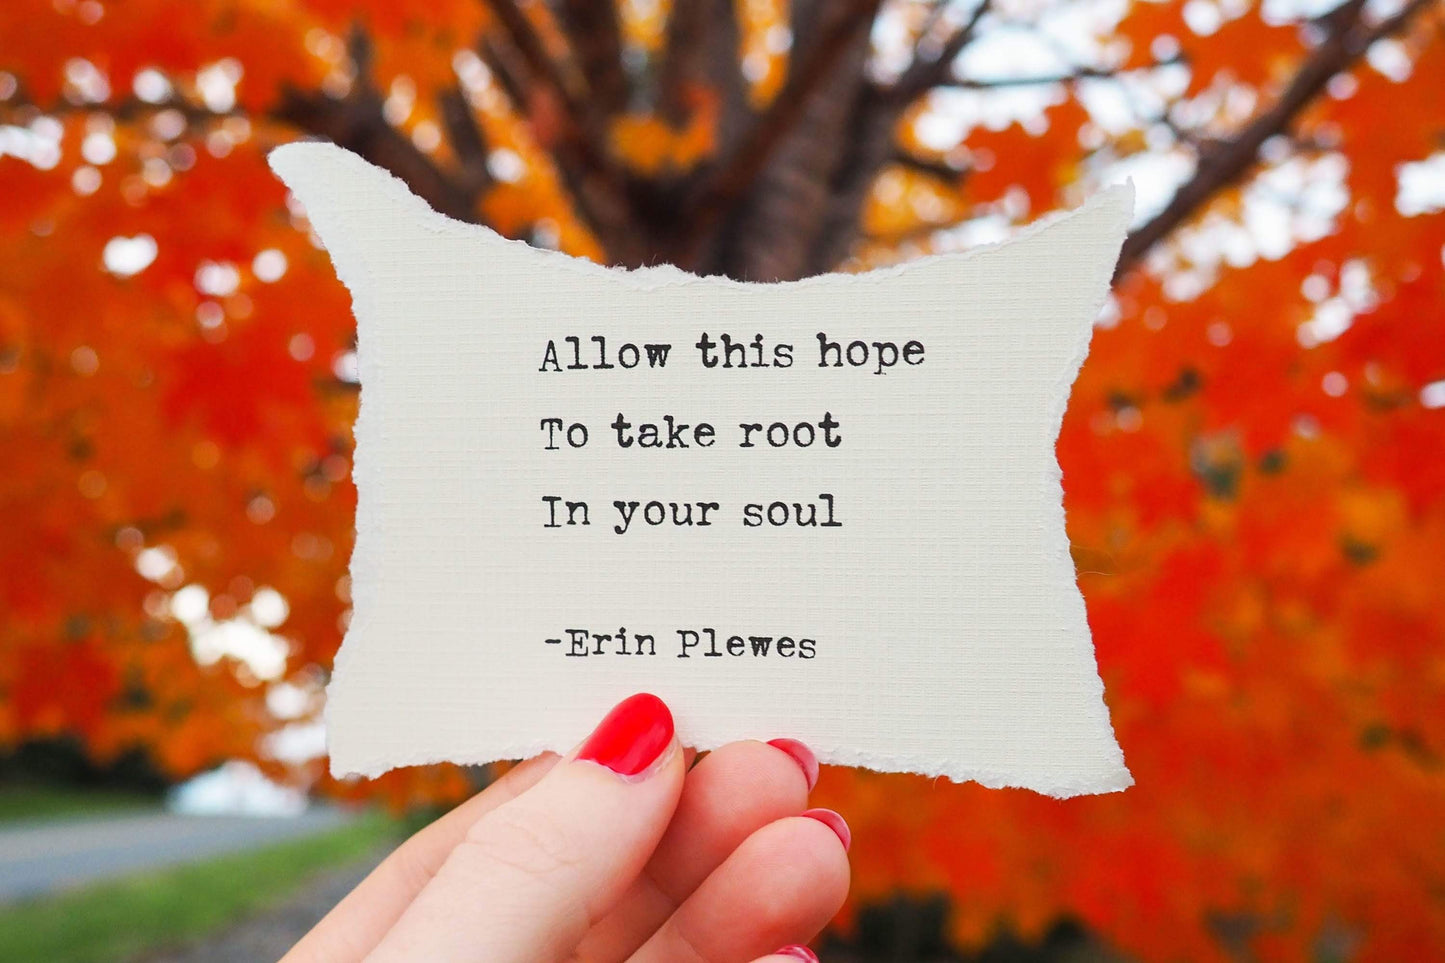 Allow this hope
To take root
In your soul
-Erin Plewes